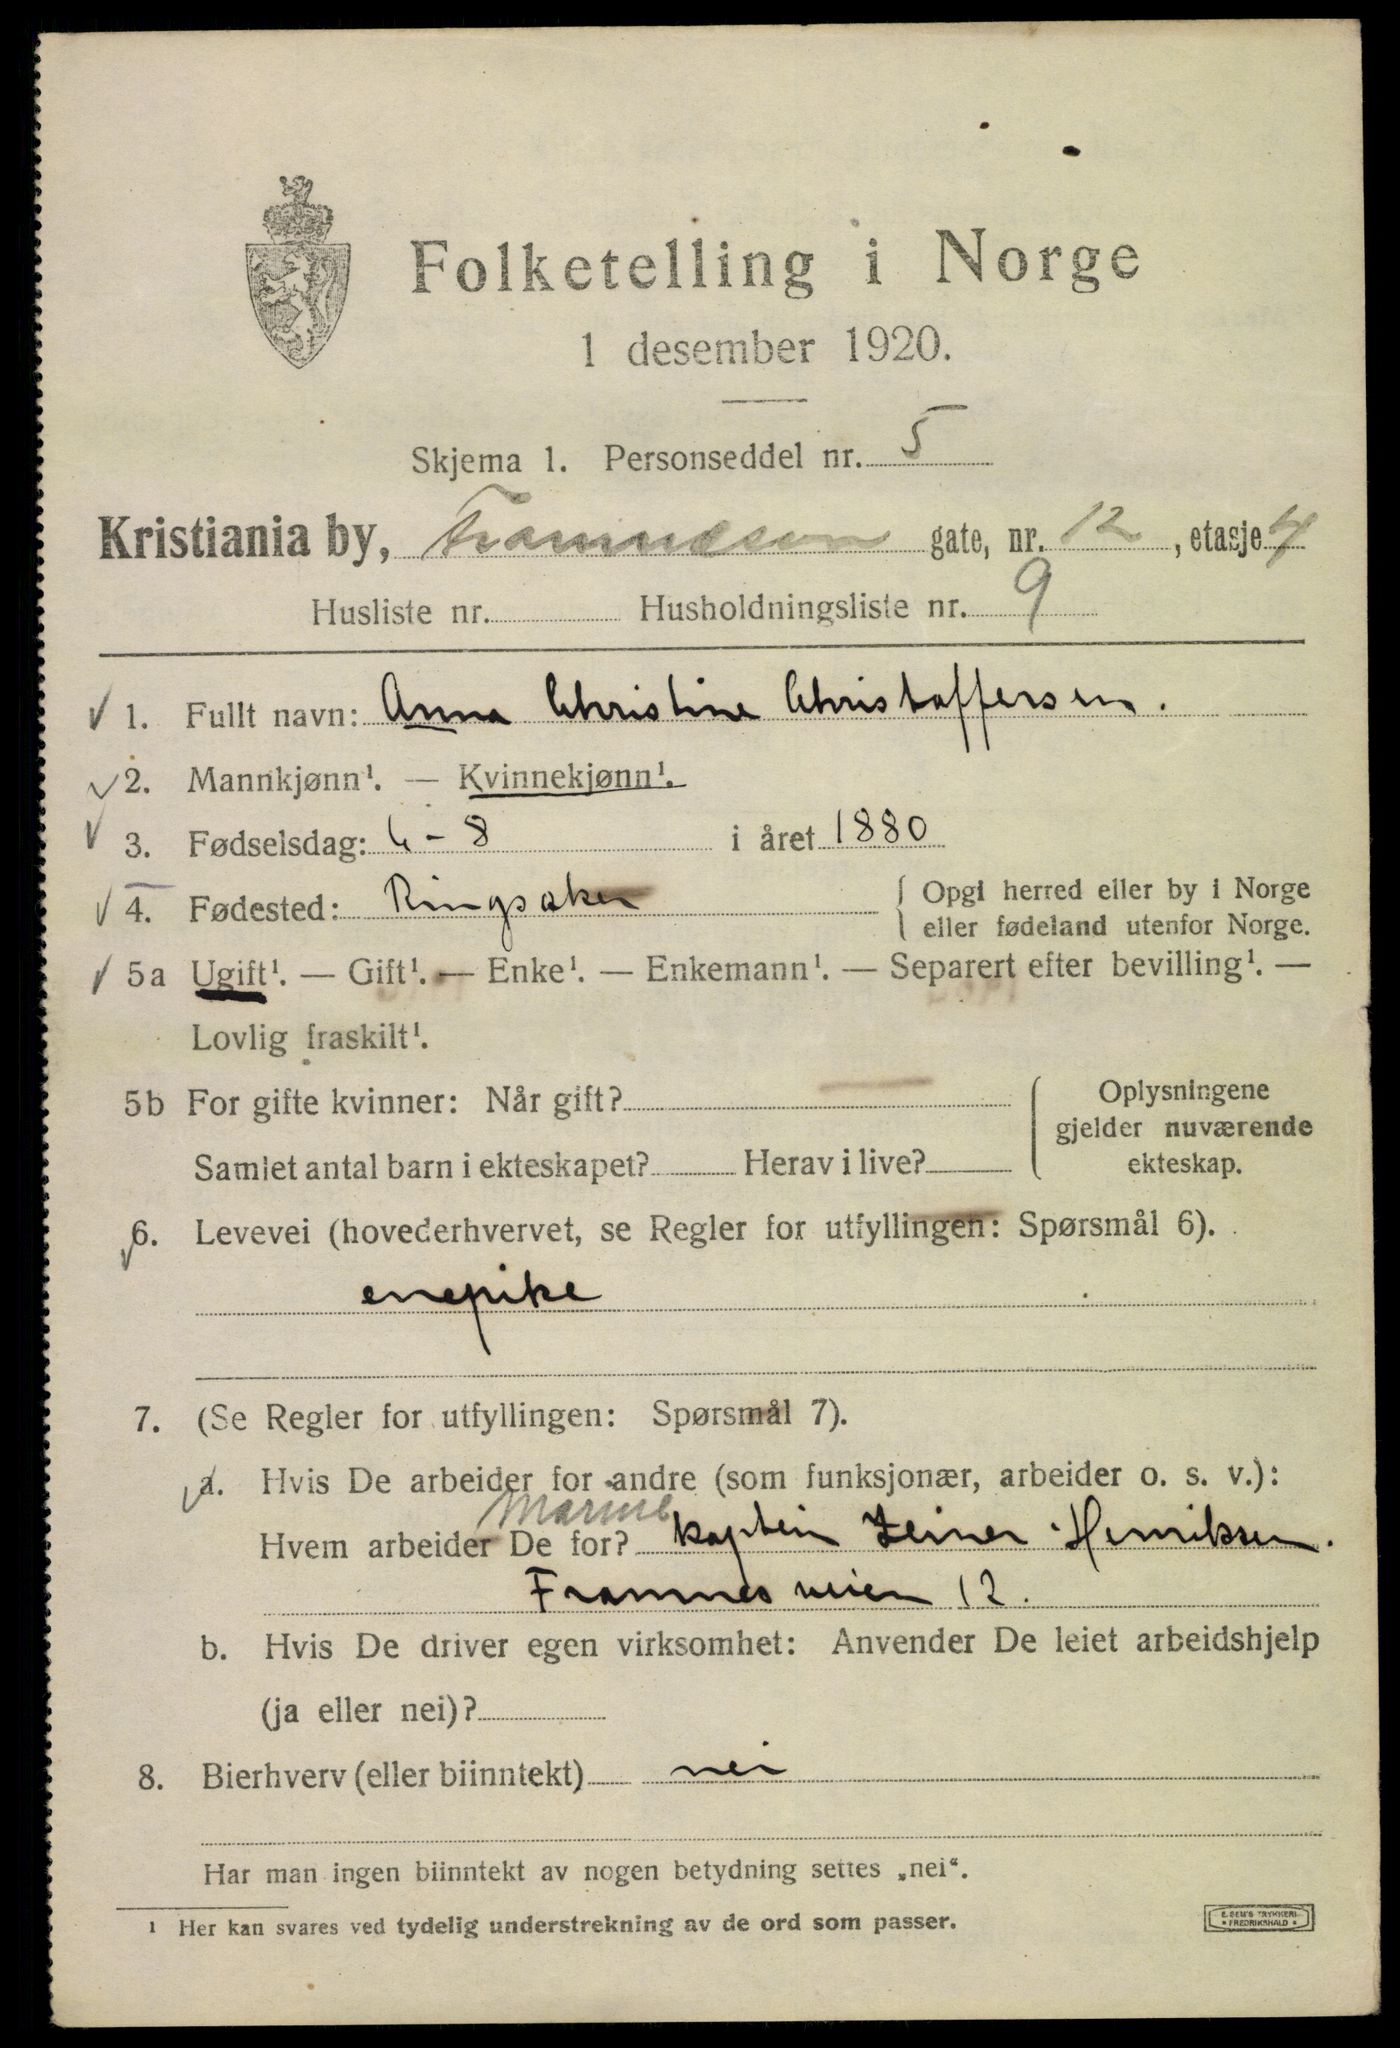 Folketelling i Norge
1 desember 1920.
Skjema 1. Personseddel nr. 5
Kristiania by, gate, nr. 12, etasje 4
Husliste nr. Husholdningsliste nr. 9
1. Fullt navn: Anna Christine Christoffersen.
2. Mannkjønn¹. — Kvinnekjønn¹.
3. Fødselsdag: 6-8 i året 1880
4. Fødested: Ringsaker { Opgi herred eller by i Norge
eller fødeland utenfor Norge.
5a Ugift¹. — Gift¹. — Enke¹. — Enkemann¹. — Separert efter bevilling¹. —
Lovlig fraskilt¹.
5b For gifte kvinner: Når gift? { Oplysningene
gjelder nuværende
Samlet antal barn i ekteskapet? Herav i live? ekteskap.
6. Levevei (hovederhvervet, se Regler for utfyllingen: Spørsmål 6).
enepike
7. (Se Regler for utfyllingen: Spørsmål 7).
a. Hvis De arbeider for andre (som funksjonær, arbeider o. s. v.):
Marine
Hvem arbeider De for? kaptein Henriksen.
Framnesveien 12.
b. Hvis De driver egen virksomhet: Anvender De leiet arbeidshjelp
(ja eller nei)?
8. Bierhverv (eller biinntekt) nei
Har man ingen biinntekt av nogen betydning settes „nei“.
¹ Her kan svares ved tydelig understrekning av de ord som passer.
E. SEM'S TRYKKERI
* FREDRIKSHALD *